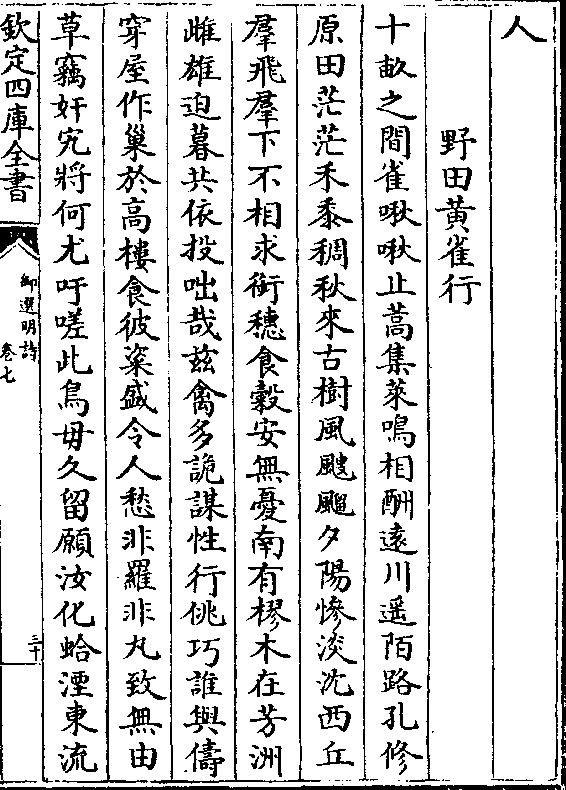 人
野田黄雀行
十畝之間雀啾啾止蒿集萊鳴相酬逺川遥陌路孔修
原田茫茫禾黍稠秋來古樹風颼飀夕陽慘淡沈西丘
羣飛羣下不相求銜穗食糓安無憂南有樛木在芳洲
雌雄迫暮共依投咄哉兹禽多詭謀性行佻巧誰與儔
穿屋作巢於高樓食彼粢盛令人愁非羅非丸致無由
草竊奸宄將何尤吁嗟此鳥毋久留願汝化蛤湮東流
欽定四庫全書
御選明詩
卷七
三十